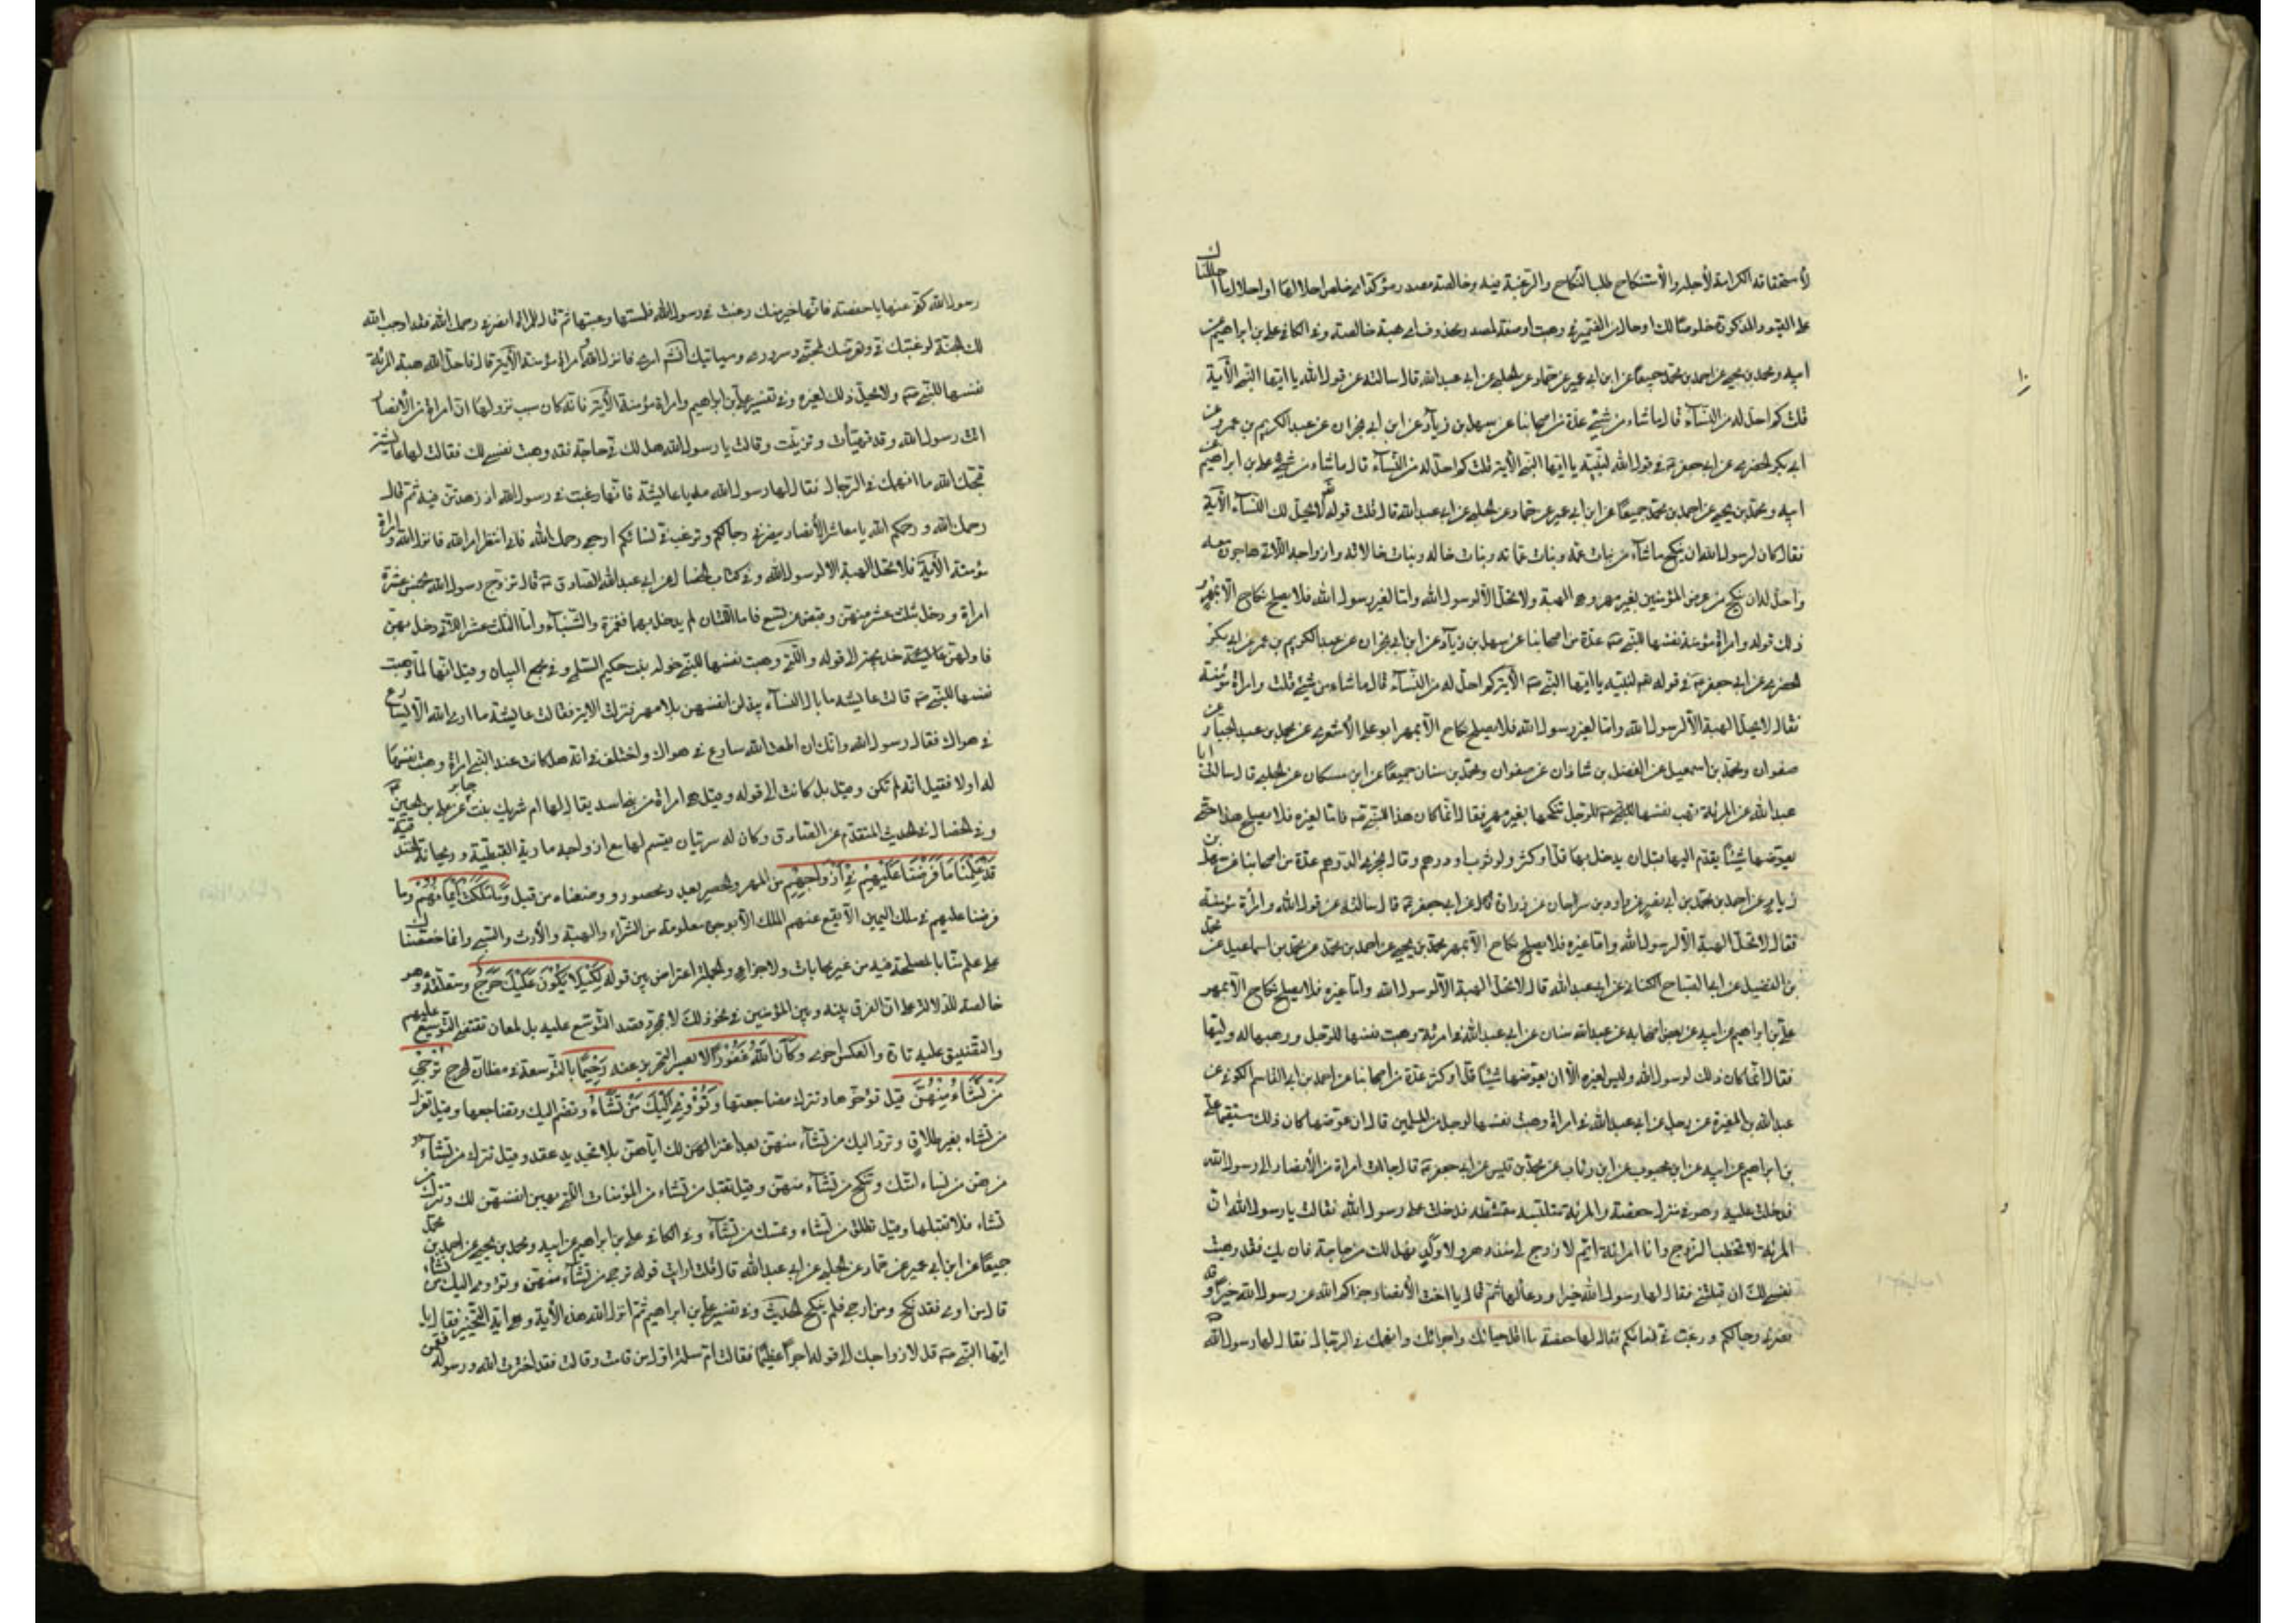 لأستحقاقه الكرامة لأجله والأستنكاح طلب النكاح والرغبة فيه وخالصة مصدر مؤكد اى خلص احلالها او احلال ما احللنا لك
على القيود المذكورة خلوصا لك او حال من الضمير فى وهبت او صفة لمصدر محذوف اى هبة خالصة وفى الكافى على بن ابراهيم عن
ابيه ومحمد بن يحيى عن احمد بن محمد جميعًا عن ابن ابى عمير عن حماد عن الحلبى عن ابى عبد الله قال سالته عن قول الله يا ايها النبى الآية
قلت كم احل له من النسآء قال ما شاء من شئ عدّة من اصحابنا عن سهل بن زياد عن ابن ابى نجران عن عبد الكريم بن عمرو عن
ابى بكر الحضرمى عن ابى جعفر ع فى قول الله لنبيّه يا ايها النبى الآية قلت كم احل له من النسآء قال ما شاء من شئ على بن ابراهيم عن
ابيه ومحمد بن يحيى عن احمد بن محمد جميعًا عن ابن ابى عمير عن حماد عن الحلبى عن ابى عبد الله قال قلت قوله لا يحل لك النسآء الآية
فقال كان لرسول الله ان ينكح ما شآء من بنات عمه وبنات عماته وبنات خاله وبنات خالاته وازواجه اللاتى هاجرن معه
واحل له ان ينكح من عرض المؤمنين بغير مهر وهى الهبة ولا تحل الا لرسول الله واما لغير رسول الله فلا يصلح نكاح الا بمهر و
ذلك قوله وامراة مؤمنة نفسها للنبى ص عدّة من اصحابنا عن سهل بن زياد عن ابن ابى نجران عن عبد الكريم بن عمر عن ابى بكر
الحضرمى عن ابى جعفر ع فى قوله لنبيه يا ايها النبى ص الآية كم احل له من النسآء قال ما شاء من شئ قلت وامراة مؤمنة
فقال لا يحل الهبة الا لرسول الله واما لغير رسول الله فلا يصلح نكاح الا بمهر ابو على الأشعرى عن محمد بن عبد الجبار عن
صفوان ومحمد بن اسمعيل عن الفضل بن شاذان عن صفوان ومحمد بن سنان جميعًا عن ابن مسكان عن الحلبى قال سالت ابا
عبد الله عن المرئة تهب نفسها للرجل ينكحها بغير مهر فقال انما كان هذا للنبى ص فاما لغيره فلا يصلح هذا حتى
يعوضها شيئًا يقدم اليها قبل ان يدخل بها قل او كثر ولو ثوب او درهم وقال يجزى الدرهم عدّة من اصحابنا عن سهل بن
زياد عن احمد بن محمد بن ابى نصر عن داود بن سرحان عن زرارة عن ابى جعفر ع قال سالته عن قول الله وامرأة مؤمنة
فقال لا تحل الهبة الا لرسول الله واما غيره فلا يصلح نكاح الا بمهر محمد بن يحيى عن احمد بن محمد عن محمد بن اسماعيل عن محمد
بن الفضيل عن ابى الصباح الكنانى عن ابى عبد الله قال لا تحل الهبة الا لرسول الله واما غيره فلا يصلح نكاح الا بمهر
على بن ابراهيم عن ابيه عن بعض اصحابه عن عبد الله سنان عن ابى عبد الله فى امرئة وهبت نفسها للرجل ووهبها له وليها
فقال انما كان ذلك لرسول الله وليس لغيره الا ان يعوضها شيئًا قل او كثر عدّة من اصحابنا عن احمد بن ابى القاسم الكوفى عن
عبد الله بن المغيرة عن رجل عن ابى عبد الله فى امراة وهبت نفسها لرجل من المسلمين قال ان عوضها كان ذلك مستقيما على
بن ابراهيم عن ابيه عن ابن محبوب عن ابن رئاب عن محمد بن قيس عن ابى جعفر ع قال جائت امراة من الأنصار الى رسول الله
فدخلت عليه وهو فى منزل حفصة والمرئة متلبسة متمشطة فدخلت على رسول الله فقالت يا رسول الله ان
المرئة لا تخطب الزوج وانا امرائة ايّم لا زوج لى منذ دهر ولا ولد فهل لك من حاجة فان يك فقد وهبت
نفسى لك ان قبلتنى فقال لها رسول الله خيرا ودعا لها ثم قال يا اخت الأنصار جزاكم الله عن رسول الله خيرًا فقد
نصرنى رجالكم ورغبت فى نسائكم فقالت لها حفصة ما اقل حيائك واجرائك وانهمك فى الرجال فقال لها رسول الله
رسول الله كفى عنها يا حفصة فانها خير منك رغبت فى رسول الله فلمتها وعبتها ثم قال للمراة انصرفى رحمك الله فقد اوجب الله
لك الجنة لرغبتك فى وتعرضك لمحبتى وسرورى وسياتيك امرى فانزل الله وامراة مؤمنة الآية قال فاحل الله هبة المرئة
نفسها للنبى ص ولا يحل ذلك لغيره وفى تفسير على بن ابراهيم وامراة مؤمنة الآية فانه كان سبب نزولها ان امراة من الأنصار
اتت رسول الله وقد تهيئات وتزينت وقالت يا رسول الله هل لك فى حاجة فقد وهبت نفسى لك فقالت لها عايشة
قبحك الله ما انهمك فى الرجال فقال لها رسول الله مه يا عايشة فانها رغبت فى رسول الله اذ زهدتن فيه ثم قال
رحمك الله ورحمكم الله يا معاشر الأنصار نصرنى رجالكم وترغب فى نسائكم ارجعى رحمك الله فانى انتظر امر الله فانزل الله وامراة
مؤمنة الأية فلا تحل الهبة الا لرسول الله وفى كتاب الخصال عن ابى عبد الله الصادق ع قال تزوج رسول الله بخمس عشرة
امراة ودخل بثلث عشر منهن وقبض عن تسع فاما اللتان لم يدخل بهما فعمرة والشنباء واما الثلث عشر اللاتى دخل بهن
فاولهن خديجة الى قوله واللتى وهبت نفسها للنبى خوله بنت حكيم السلمى وفى مجمع البيان وقيل انها لما وهبت
نفسها للنبى ص قالت عايشة ما بال النسآء يبذلن انفسهن بلا مهر فنزلت الاية فقالت عايشة ما ارى الله الا يسارع
فى هواك فقال رسول الله وانك ان اطعت الله سارع فى هواك واختلف فى انه هل كانت عند النبى امراة وهبت نفسها
له اولا فقيل انه لم تكن وقيل بل كانت الى قوله وقيل هى امراة من بنى اسد يقال لها ام شريك بنت جابر عن على بن الحسين ع
وفى الخصال فى الحديث المتقدم عن الصادق وكان له سريتان يقسم لهما مع ازواجه مارية القبطية وريحانة الخندفية
قَدْ عَلِمْنَا مَا فَرَضْنَا عَلَيْهِمْ فِى أَزْوَاجِهِمْ من المهر والحصر بعدد محصور ووضعناه من قبل وَمَا مَلَكَتْ أَيْمَانُهُمْ وما
فرضنا عليهم فى ملك اليمين الا يقع عنهم الملك الا بوجوه معلومة من الشراء والهبة والأرث والسبى وانما خصصناك
على علم منا بالمصلحة فيه من غير محابات ولا جزاف والجملة اعتراض بين قوله لِكَيْلَا يَكُونَ عَلَيْكَ حَرَجٌ ومتعلقه وهو
خالصة للدلالة على ان الفرق بينه وبين المؤمنين فى نحو ذلك لا بمجرد قصد التوسع عليه بل لمعان تقتضى التوسيع عليهم
والتضييق عليه تارة والعكس اخرى وَكَانَ اللَّهُ غَفُورًا لا لعسر التحرز عنه رَحِيمًا بالتوسعة فى مظان الحرج تُرْجِى
مَنْ تَشَاءُ مِنْهُنَّ قيل تؤخرها وتترك مضاجعتها وَتُؤْوِى إِلَيْكَ مَنْ تَشَاءُ وتضم اليك وتضاجعها وقيل تعزل
من تشاء بغير طلاق وترد اليك من تشآء منهن بعد اعتزالهن لك اياهن بلا تجديد عقد وقيل تترك من تشآء و
من نساء امتك وتنكح من تشآء منهن وقيل تقبل من تشاء من المؤمنات اللتى يهبن انفسهن لك وتترك من
تشاء فلا تقبلها وقيل تطلق من تشاء وتمسك من تشآء وفى الكافى على بن ابراهيم عن ابيه ومحمد بن يحيى عن احمد بن محمد
جميعًا عن ابن ابى عمير عن حماد عن الحلبى عن ابى عبد الله قال قلت ارايت قوله ترجى من تشآء منهن وتؤوى اليك من تشاء
قال من اوى فقد نكح ومن ارجى فلم ينكح الحديث وفى تفسير على بن ابراهيم ثم انزل الله هذه الأية وهى اية التخيير فقال يا
ايها النبى ص قل لازواجك الى قوله اجرًا عظيمًا فقامت ام سلمة اول من قامت وقالت فقد اخترت الله ورسوله فقمن